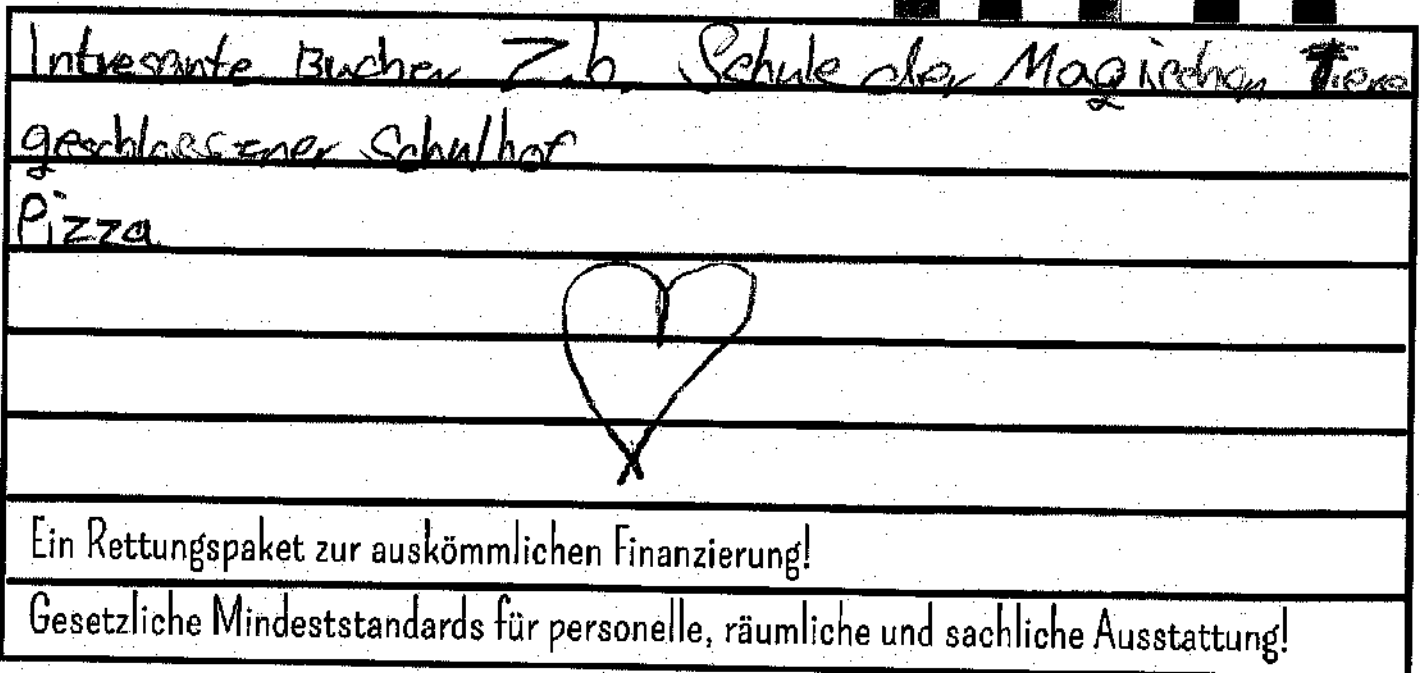 Intresante Bücher Z.b. Schule der Magischen Tiere
geschlossener Schulhof
Pizza
Ein Rettungspaket zur auskömmlichen Finanzierung!
Gesetzliche Mindeststandards für personelle, räumliche und sachliche Ausstattung!